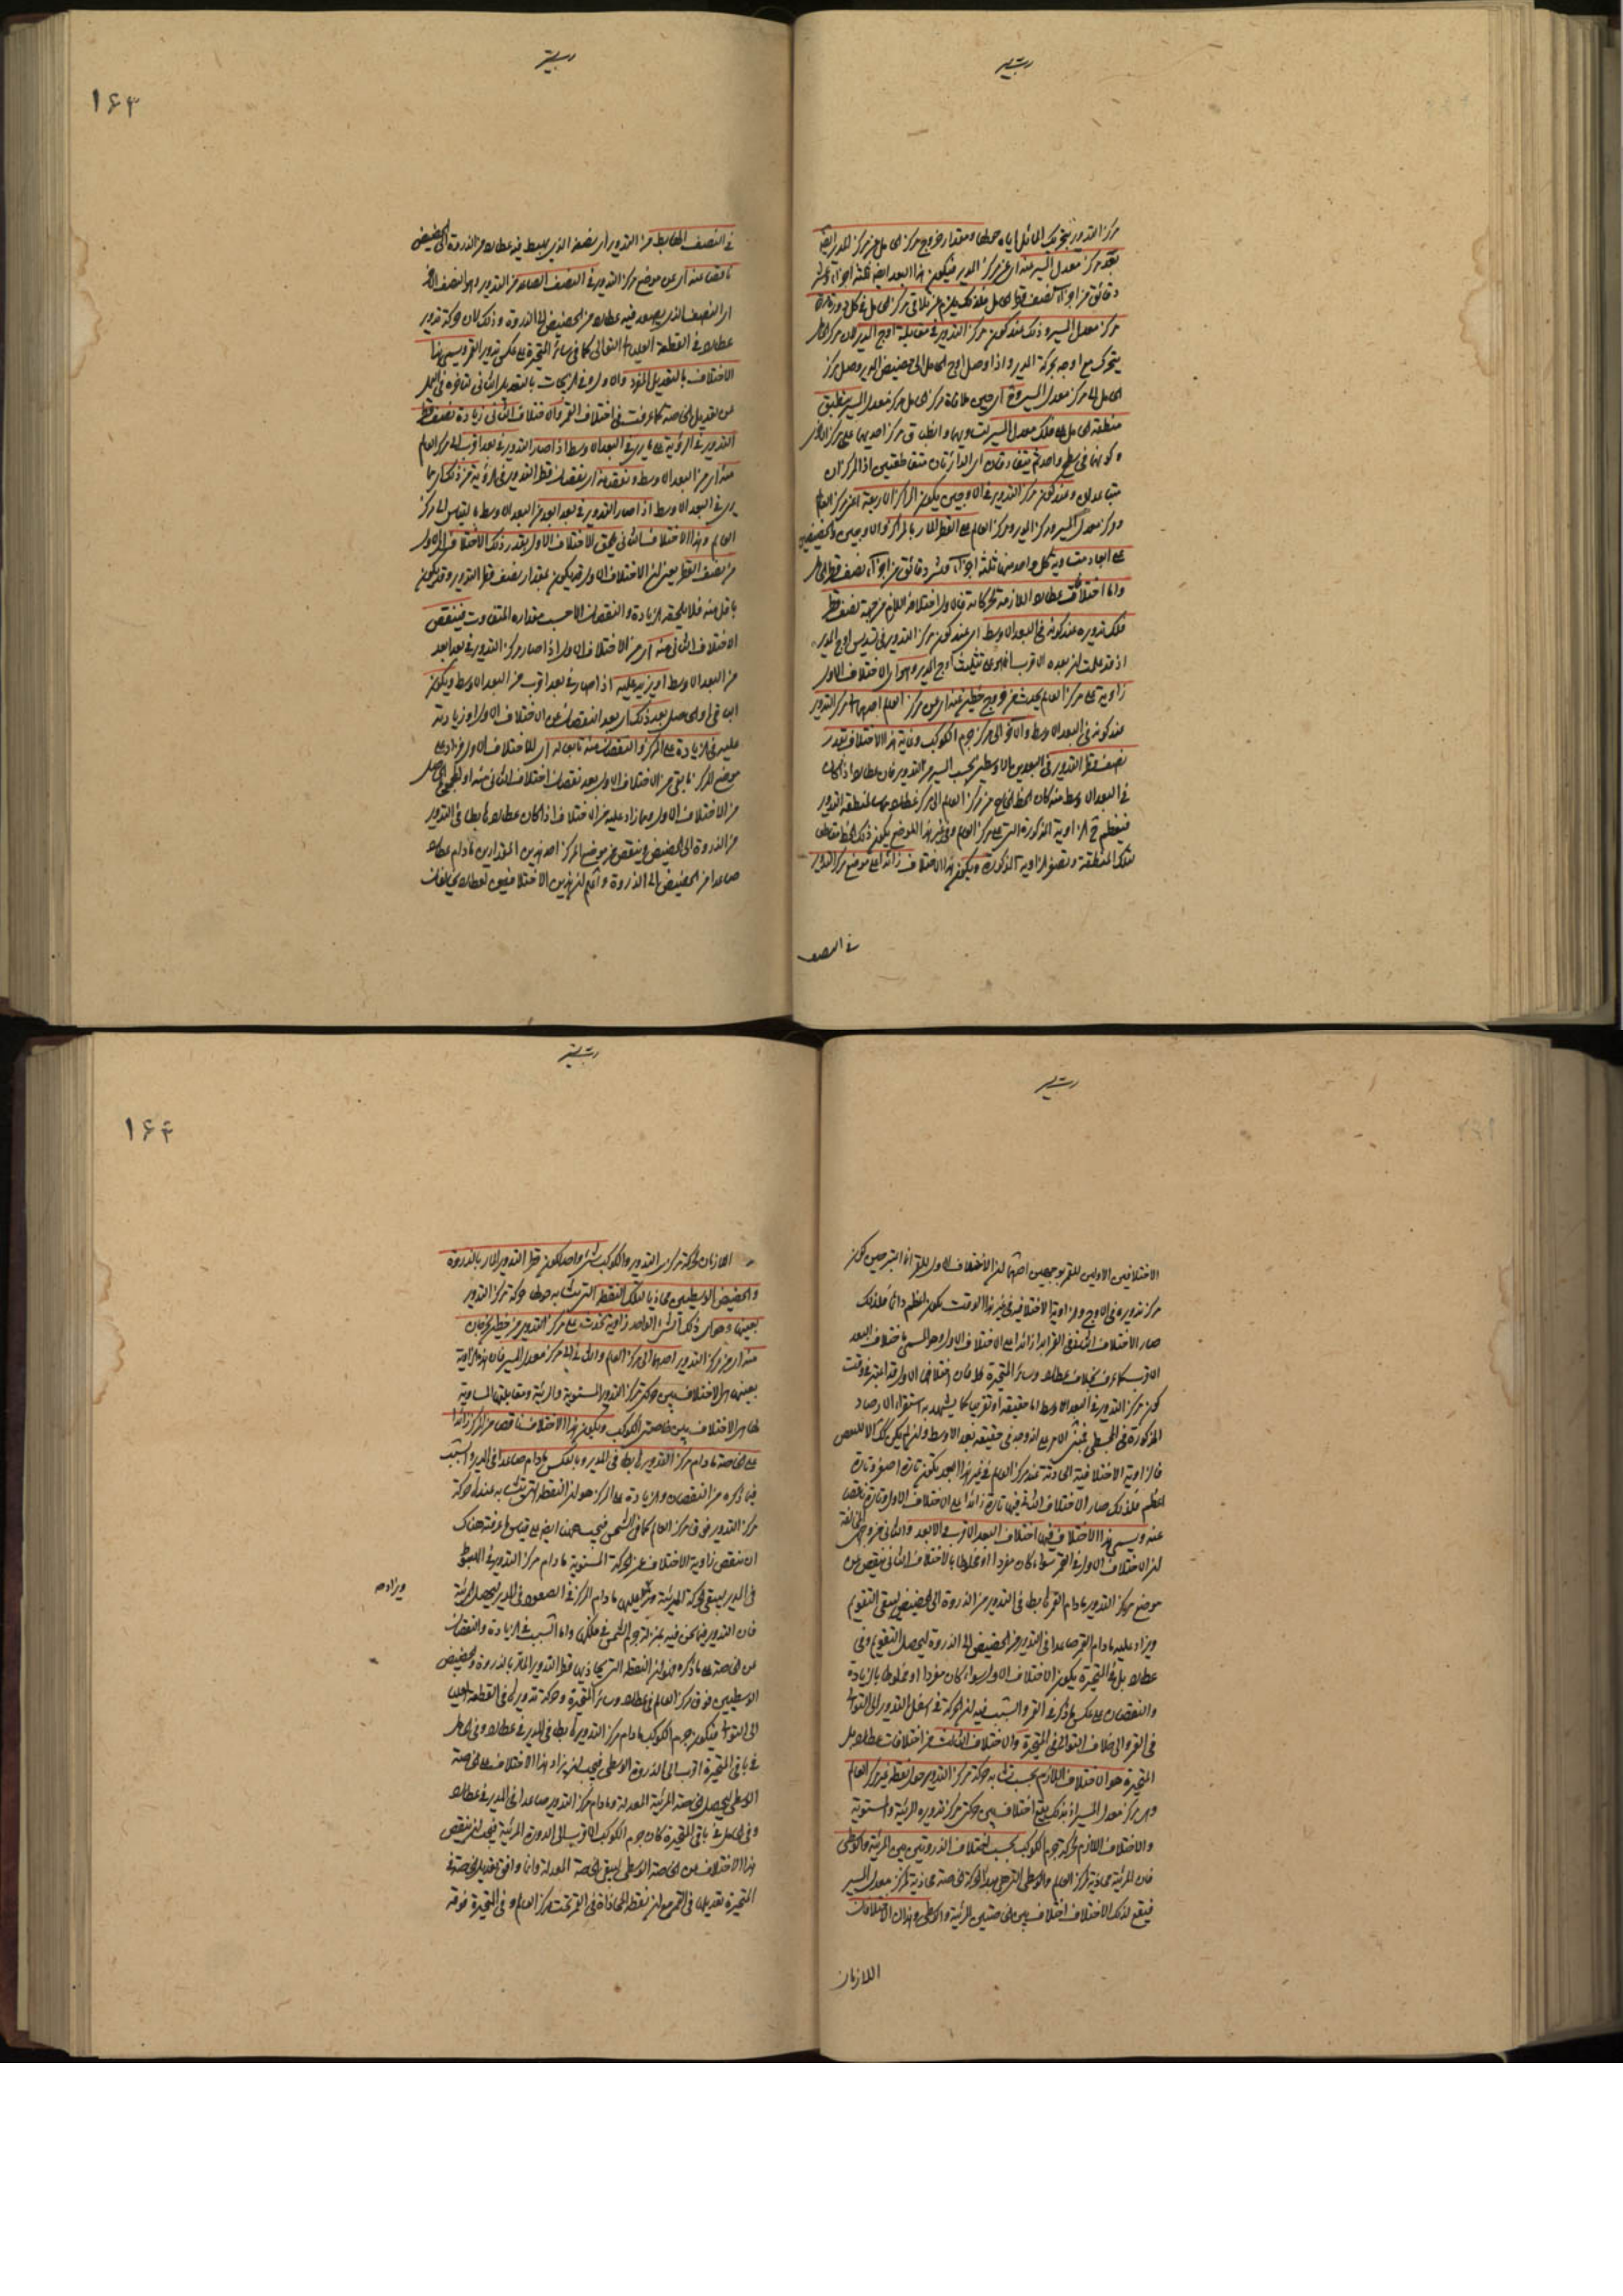 مركز التدوير بتحريك المائل اياه حولها ومقدار خروج مركز الحامل عن مركز المدير ايضا
بعد مركز معدل المسير منه اى عن مركز المدير فيكون هذا البعد ايضا ثلثة اجزاء وعشر
دقائق من اجزاء نصف قطر الحامل فلذلك يلزم تلاقى مركز الحامل فى كل دورة
مركز معدل المسير وذلك عند كون مركز التدوير فى مقابلة اوج المدير لان مركز الحامل
يتحرك مع اوجه بحركة المدير واذا وصل اوج الحامل الى حضيض المدير وصل مركز
الحامل الى مركز معدل المسير وح اى حين ملاقاة مركز الحامل مركز معدل المسير ينطبق
منطقة الحامل على فلك معدل المسير لتساويهما وانطباق مركز احديهما على مركز الاخر
وكونهما فى سطح واحد ثم يتفارقان اى الدائرتان متقاطعتين اذ المركزان
متباعدان وعند كون مركز التدوير فى الاوجين يكون المراكز الاربعة اعنى مركز العالم
ومركز معدل المسير ومركز المدير ومركز الحامل على القطر المار بالمراكز والاوجين والحضيضين
على ابعاد متساوية كل واحد منها ثلثة اجزاء وعشر دقائق من اجزاء نصف قطر الحامل
واما اختلافات عطارد اللازمة لحركاته فالاول اختلاف اللازم من جهة نصف قطر
فلك تدويره عند كونه فى البعد الاوسط اى عند كون مركز التدوير فى تسديس اوج المدير
اذ قد علمت ان بعده الاقرب انما هو فى تثليث اوج المدير وهو اى الاختلاف الاول
زاوية على مركز العالم يحدث من خروج خطين عنه اى عن مركز العالم احدهما الى مركز التدوير
عند كونه فى البعد الاوسط والاخر الى مركز جرم الكوكب وغاية هذا الاختلاف بقدر
نصف قطر التدوير فى البعدين الاوسطين بحسب المسير من التدوير فان عطارد اذا كان
فى البعد الاوسط منه كان الخط الخارج من مركز العالم الى مركز عطارد مماسا لمنطقة التدوير
فيعظم ح الزاوية المذكورة التى على مركز العالم وفى غير هذا الموضع يكون ذلك الخط قاطعا
لتلك المنطقة وتصغر الزاوية المذكورة ويكون هذا الاختلاف زائدا على موضع مركز التدوير
فى النصف
١٦٣
فى النصف الهابط من التدوير اى نصفه الذى يهبط فيه عطارد من الذروة الى الحضيض
ناقصا عنه اى عن موضع مركز التدوير فى النصف الصاعد من التدوير وهو النصف الاخر
اى النصف الذى يصعد فيه عطارد من الحضيض الى الذروة وذلك لان حركة تدوير
عطارد فى القطعة العليا الى التوالى كما فى سائر المتحيرة على عكس تدوير القمر ويسمى هذا
الاختلاف بالتعديل المفرد والاول وفى الزيجات بالتعديل الثانى لتاخره فى العمل
عن تعديل الخاصة كما عرفت فى اختلاف القمر والاختلاف الثانى زيادة نصف قطر
التدوير فى الرؤية على ما يرى فى البعد الاوسط اذا صار التدوير فى بعد اقرب الى مركز العالم
منه اى من البعد الاوسط ونقصانه اى نقصان قطر التدوير فى الرؤية من ذلك اى مما
يرى فى البعد الاوسط اذا صار التدوير فى بعد ابعد من البعد الاوسط بالقياس الى مركز
العالم وهذا الاختلاف الثانى يلحق الاختلاف الاول بقدر ذلك الاختلاف الاول
من نصف القطر يعنى ان الاختلاف الاول قد يكون بمقدار نصف قطر التدوير وقد يكون
باقل منه فلا يلحقه الزيادة والنقصان الا حسب مقداره المتفاوت فينقص
الاختلاف الثانى منه اى من الاختلاف الاول اذا صار مركز التدوير فى بعد ابعد
من البعد الاوسط او يزيد عليه اذا صار فى بعد اقرب من البعد الاوسط ويكون
الباقى او الحاصل بعد ذلك اى بعد النقصان عن الاختلاف الاول او زيادته
عليه فى الزيادة على المركز والنقصان منه تابعا له اى للاختلاف الاول فيزاد على
موضع المركز ما بقى من الاختلاف الاول بعد نقصان اختلاف الثانى منه او المجموع الحاصل
من الاختلاف الاول ومما زاد عليه من الاختلاف اذا كان عطارد هابطا فى التدوير
من الذروة الى الحضيض وينقص من موضع المركز احد هذين المقدارين ما دام عطارد
صاعدا من الحضيض الى الذروة واعلم ان هذين الاختلافين لعطارد يخالفان
الاختلافين الاولين للقمر بوجهين احدهما ان الاختلاف الاول للقمر انما اعتبر حين كون
مركز تدويره فى الاوج والزاوية الاختلافية فى غير هذا الوقت يكون اعظم دائما فلذلك
صار الاختلاف الثانى فى القمر ابدا زائدا على الاختلاف الاول وهو المسمى باختلاف البعد
الاقرب كما عرفت بخلاف عطارد وسائر المتحيرة فان اختلافها الاول قد اعتبر فى وقت
كون مركز التدوير فى البعد الاوسط اما حقيقة او تقريبا كما يشهد به استقراء الارصاد
المذكورة فى المجسطى
فالزاوية الاختلافية الحادثة عند مركز العالم فى غير هذا البعد يكون تارة اصغر وتارة
اعظم فلذلك صار الاختلاف الثانى فيها تارة زائدا على الاختلاف الاول وتارة ناقصا
عنه ويسمى هذا الاختلاف فيها اختلاف البعد الاقرب والابعد والثانى من وجهى المخالفة
ان الاختلاف الاول فى القمر سواء كان مفردا او مخلوطا بالاختلاف الثانى ينقص من
موضع مركز التدوير ما دام القمر هابطا فى التدوير من الذروة الى الحضيض ليبقى التقويم
ويزاد عليه ما دام القمر صاعدا فى التدوير من الحضيض الى الذروة ليحصل التقويم وفى
عطارد بل فى المتحيرة يكون الاختلاف الاول سواء كان مفردا او مخلوطا بالزيادة
والنقصان على عكس ما ذكر فى القمر والسبب فيه ان الحركة فى اسفل التدوير الى التوالى
فى القمر والى خلاف التوالى فى المتحيرة والاختلاف الثالث من اختلافات عطارد بل
المتحيرة هو الاختلاف اللازم بحسب تشابه حركة مركز التدوير حول نقطة غير مركز العالم
وهى مركز معدل المسير اذ بذلك يقع اختلاف بين حركتى مركز تدويره المرئية والمستوية
والاختلاف اللازم لحركة جرم الكوكب بحسب اختلاف الذروتين بين المرئية والوسطى
فان المرئية محاذية لمركز العالم والوسطى التى هى مبدأ الحركة الخاصة محاذية لمركز معدل المسير
فيقع لذلك الاختلاف اختلاف بين الخاصتين المرئية والوسطى وهذان الاختلافان
اللازمان
١٦٤
اللازمان لحركة مركز التدوير والكوكب شىء واحد لكون قطر التدوير المار بالذروة
والحضيض الوسطيين محاذيا لتلك النقطة التى تشابه حولها حركة مركز التدوير
بعينها وهو اى ذلك الشىء الواحد زاوية تحدث على مركز التدوير من خطين يخرجان
منه اى من مركز التدوير احدهما الى مركز العالم والثانى الى مركز معدل المسير فان هذه الزاوية
بعينها هى الاختلاف بين حركتى مركز التدوير المستوية والمرئية ومقابلتها المساوية
لها هى الاختلاف بين خاصتى الكوكب ويكون هذا الاختلاف ناقصا من المركز زائدا
على الخاصة ما دام مركز التدوير هابطا فى المدير وبالعكس ما دام صاعدا فى المدير والسبب
فيما ذكره من النقصان والزيادة على المركز هو ان النقطة التى تتشابه عندها حركة
مركز التدوير فوق مركز العالم كما فى الشمس فيجب ههنا ايضا على قياس ما عرفته هناك
ان ينقص زاوية الاختلاف عن الحركة المستوية ما دام مركز التدوير فى الهبوط
فى المدير ليبقى الحركة المرئية ويزاد عليها ما دام المركز فى الصعود فى المدير ليحصل المرئية
ويزاد
فان التدوير فيما نحن فيه بمنزلة جرم الشمس فى فلكها واما السبب فى الزيادة والنقصان
من الخاصة على ما ذكره فهو ان النقطة التى يحاذيها قطر التدوير المار بالذروة والحضيض
الوسطيين فوق مركز العالم فى عطارد وسائر المتحيرة وحركة تدويرها فى القطعة العليا
الى التوالى فيكون جرم الكوكب ما دام مركز التدوير هابطا فى المدير فى عطارد وفى الحامل
فى باقى المتحيرة اقرب الى الذروة الوسطى فيجب ان يزاد هذا الاختلاف على الخاصة
الوسطى ليحصل الخاصة المرئية المعدلة وما دام مركز التدوير صاعدا فى المدير فى عطارد
وفى الحامل فى باقى المتحيرة كان جرم الكوكب اقرب الى الذروة المرئية فيجب ان ينقص
هذا الاختلاف من الخاصة الوسطى ليبقى الخاصة المعدلة وانما وافق تعديل الخاصة فى
المتحيرة تعديلها فى القمر مع ان نقطة المحاذاة فى القمر تحت مركز العالم وفى المتحيرة فوقه